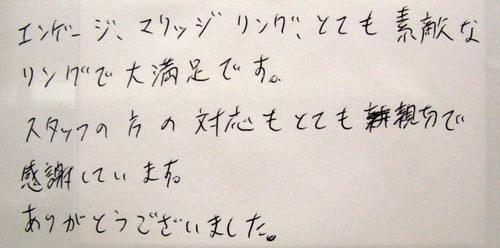 エンゲージ、マリッジリング、とても素敵な
リングで大満足です。
スタッフの方の対応もとても親切で
感謝しています。
ありがとうございました。